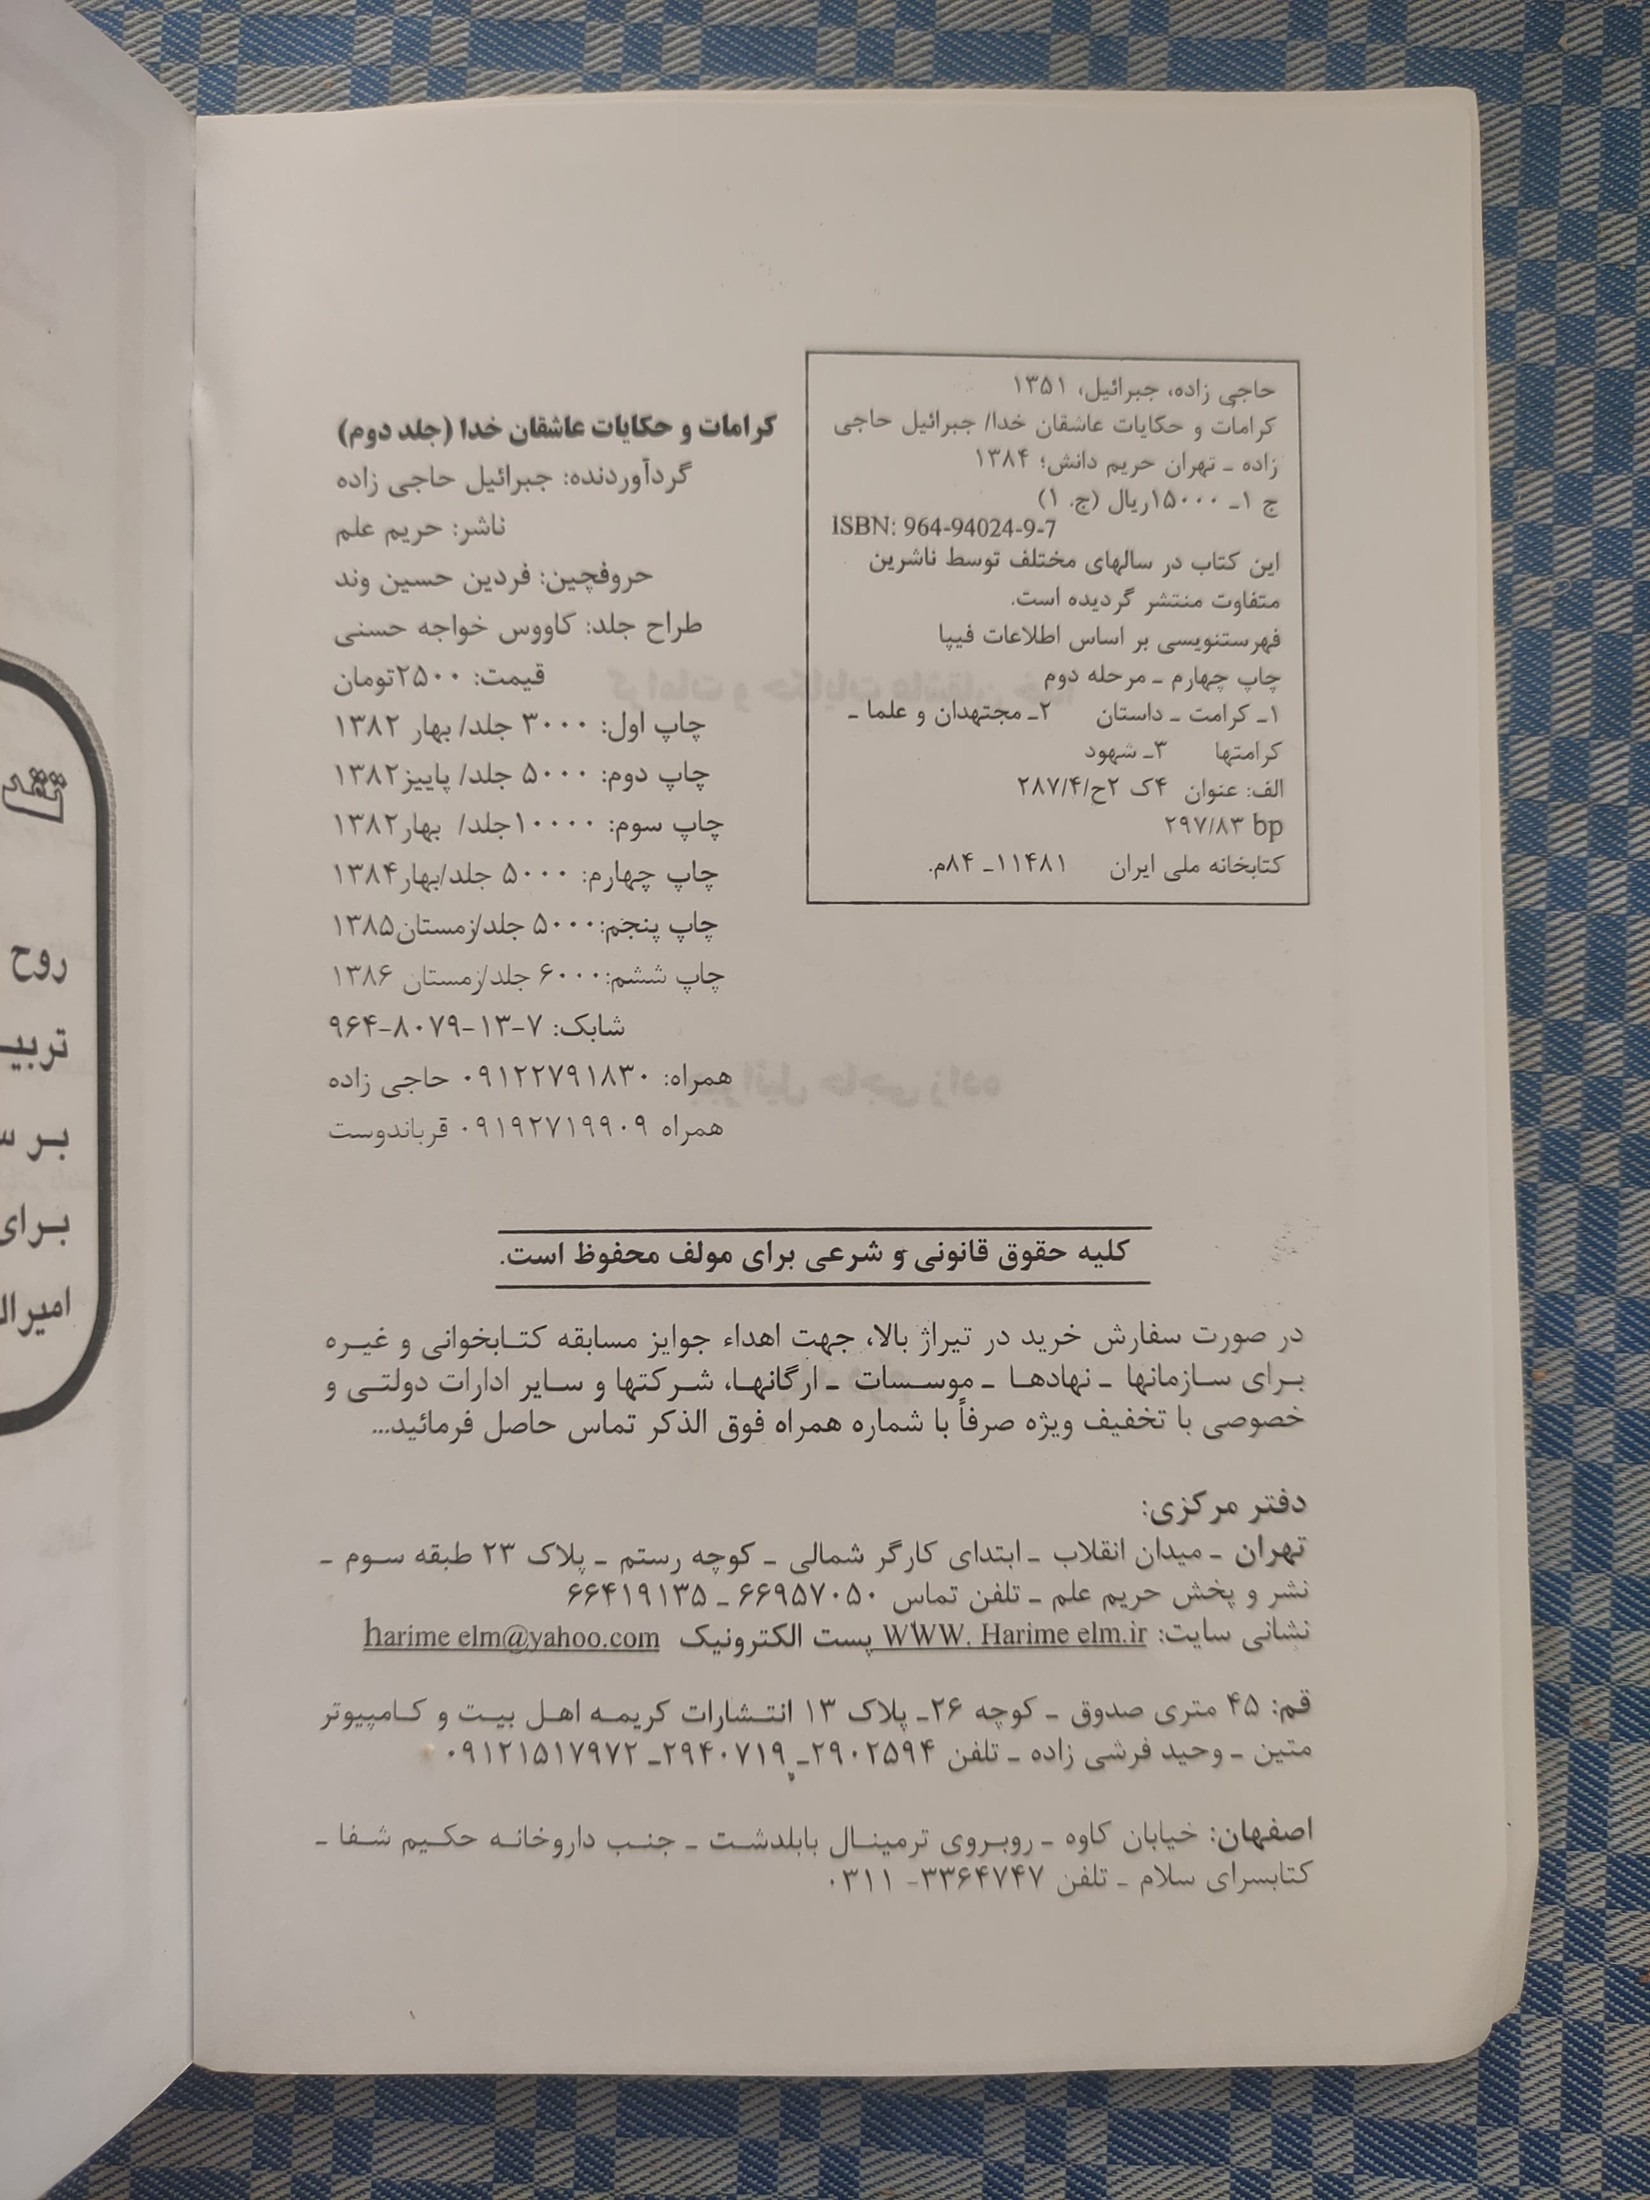 حاجی زاده، جبرائیل، ۱۳۵۱
کرامات و حکایات عاشقان خدا/ جبرائیل حاجی
زاده ـ تهران حریم دانش؛ ۱۳۸۴
ج ۱ـ ۱۵۰۰۰ریال (ج. ۱)
ISBN: 964-94024-9-7
این کتاب در سالهای مختلف توسط ناشرین
متفاوت منتشر گردیده است.
فهرستنویسی بر اساس اطلاعات فیپا
چاپ چهارم ـ مرحله دوم
۱ـ کرامت ـ داستان ۲ـ مجتهدان و علما ـ
کرامتها ۳ـ شهود
الف: عنوان ۴ک ۲ح/۲۸۷/۴
۲۹۷/۸۳ bp
کتابخانه ملی ایران ۱۱۴۸۱ـ ۸۴م.
کرامات و حکایات عاشقان خدا (جلد دوم)
گردآوردنده: جبرائیل حاجی زاده
ناشر: حریم علم
حروفچین: فردین حسین وند
طراح جلد: کاووس خواجه حسنی
قیمت: ۲۵۰۰تومان
چاپ اول: ۳۰۰۰ جلد/ بهار ۱۳۸۲
چاپ دوم: ۵۰۰۰ جلد/ پاییز۱۳۸۲
چاپ سوم: ۱۰۰۰۰جلد/ بهار۱۳۸۲
چاپ چهارم: ۵۰۰۰ جلد/بهار۱۳۸۴
چاپ پنجم:۵۰۰۰ جلد/زمستان۱۳۸۵
چاپ ششم:۶۰۰۰ جلد/زمستان ۱۳۸۶
شابک: ۷-۱۳-۸۰۷۹-۹۶۴
همراه: ۰۹۱۲۲۷۹۱۸۳۰ حاجی زاده
همراه ۰۹۱۹۲۷۱۹۹۰۹ قرباندوست
کلیه حقوق قانونی و شرعی برای مولف محفوظ است.
در صورت سفارش خرید در تیراژ بالا، جهت اهداء جوایز مسابقه کتابخوانی و غیره
برای سازمانها ـ نهادها ـ موسسات ـ ارگانها، شرکتها و سایر ادارات دولتی و
خصوصی با تخفیف ویژه صرفاً با شماره همراه فوق الذکر تماس حاصل فرمائید...
دفتر مرکزی:
تهران ـ میدان انقلاب ـ ابتدای کارگر شمالی ـ کوچه رستم ـ پلاک ۲۳ طبقه سوم ـ
نشر و پخش حریم علم ـ تلفن تماس ۶۶۹۵۷۰۵۰ ـ ۶۶۴۱۹۱۳۵
نشانی سایت: WWW. Harime elm.ir پست الکترونیک harime elm@yahoo.com
قم: ۴۵ متری صدوق ـ کوچه ۲۶ـ پلاک ۱۳ انتشارات کریمه اهل بیت و کامپیوتر
متین ـ وحید فرشی زاده ـ تلفن ۲۹۰۲۵۹۴ـ ۲۹۴۰۷۱۹ـ ۰۹۱۲۱۵۱۷۹۷۲
اصفهان: خیابان کاوه ـ روبروی ترمینال بابلدشت ـ جنب داروخانه حکیم شفا ـ
کتابسرای سلام ـ تلفن ۳۳۶۴۷۴۷- ۰۳۱۱
روح
بر
برای